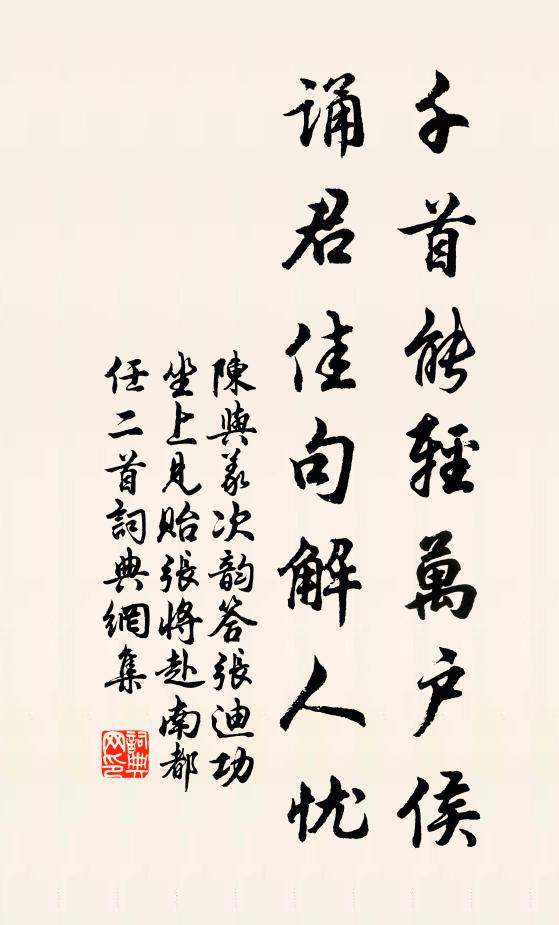 千首能輕萬户侯
誦君佳句解人忧
陳與義次韵答張迪功
坐上見貽張將赴南都
任二首詞典網集
詞典网印